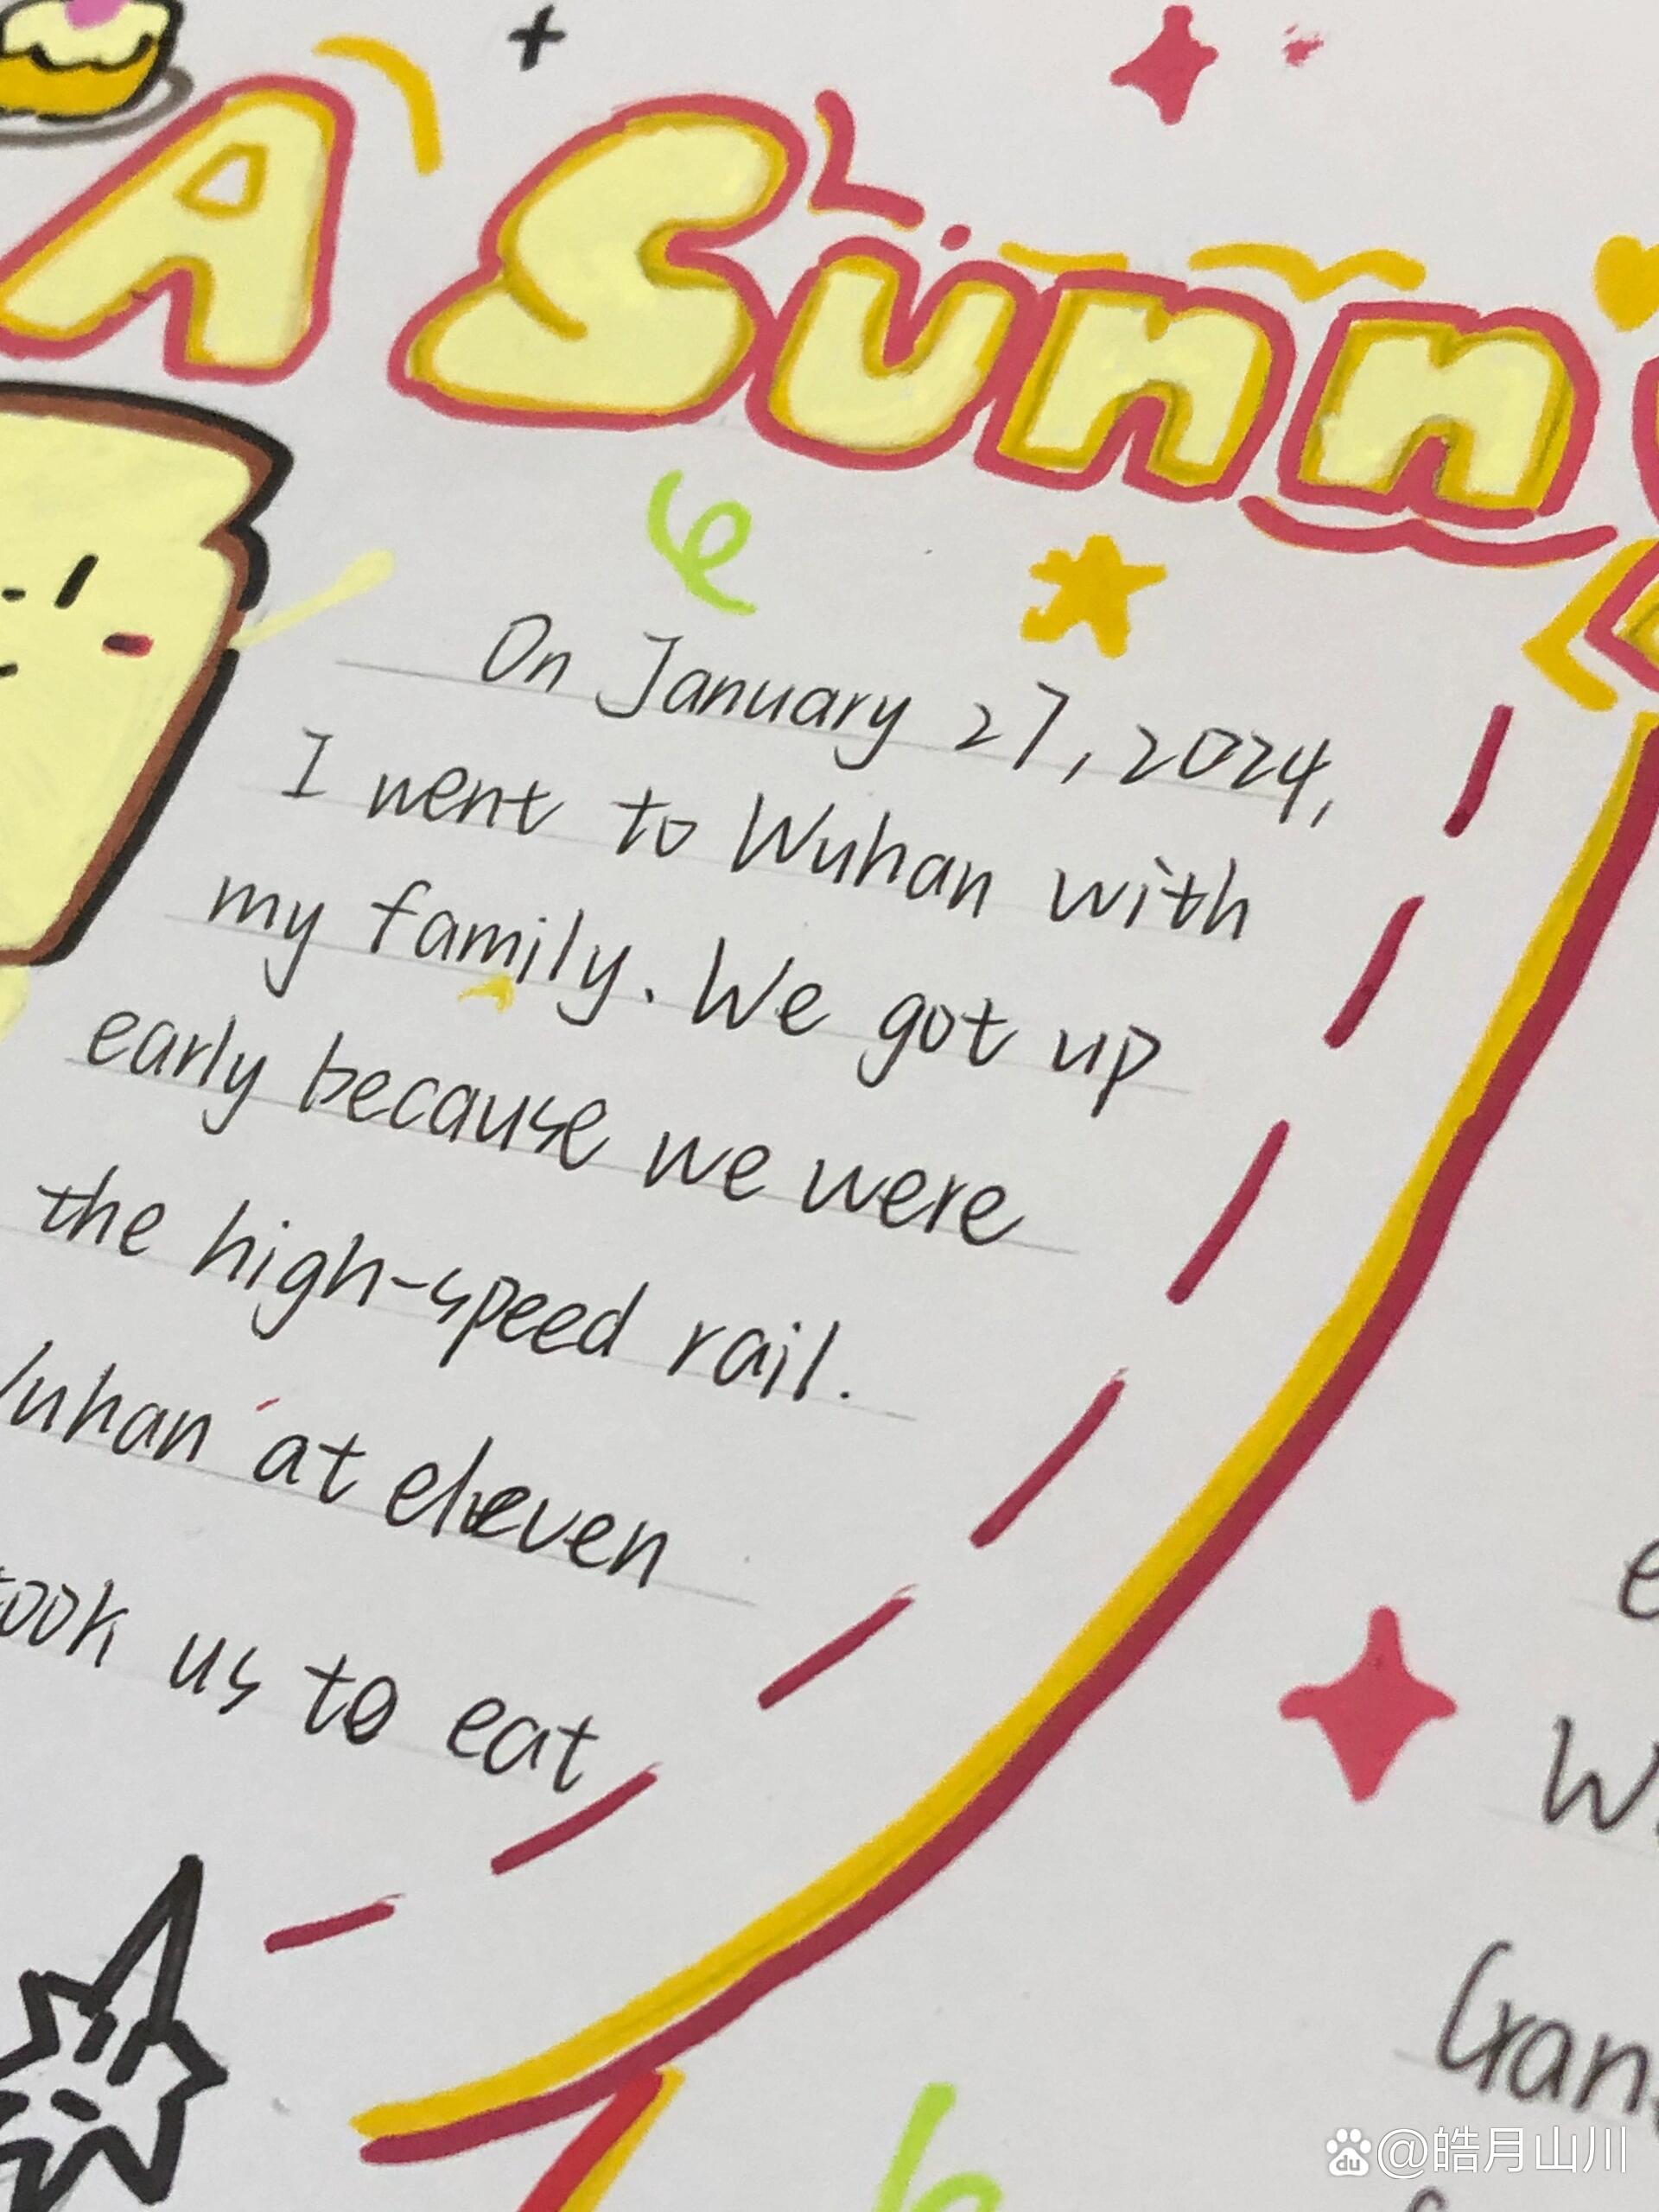 A Sunn
On January 27, 2024,
I went to Wuhan with
my family. We got up
early because we were
the high-speed rail.
at eleven
us to eat
du @皓月山川